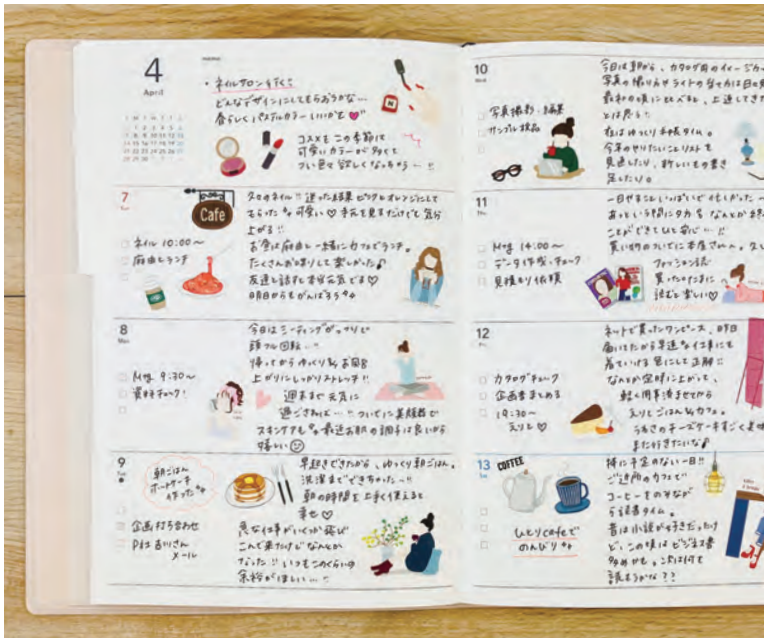 4
April
memo
・ネイルサロン行く!
どんなデザインにしてもらおうかな…
春らしくパステルカラーいいかも
コスメもこの季節は
可愛いカラーが多くて
つい色々欲しくなっちゃう…!!
7
Cafe
□ ネイル 10:00〜
□ 麻由とランチ
□
久々のネイル!! 迷った結果ピンクとオレンジにして
もらった 可愛い♡ 手元を見るだけでも気分
上がる!!
お昼は麻由と一緒にカフェでランチ。
たくさんお喋りして楽しかった♪
友達と話すと本当元気でる♡
明日からもがんばろう
8
Mon
□ Mtg 9:30〜
□ 資料チェック!
□
今日はミーティングがっつりで
頭フル回転…
帰ってからゆっくり お風呂
上がりにしっかりストレッチ!!
週末まで元気に
過ごさねば…!! ついでに美顔器で
スキンケアも 最近お肌の調子は良いから
嬉しい
9
Tue
朝ごはん
ホットケーキ
作った
□ 企画打ち合わせ
□ P社 吉川さん
メール
早起きできたから、ゆっくり朝ごはん。
洗濯までできちゃった〜!!
朝の時間を上手く使えると
幸せ♡
急な仕事がいくつか飛び
こんで来たけどなんとか
なった!! いつもこのくらいの
余裕がほしい…!!
10
Wed
□ 写真撮影・編集
□ サンプル検品
□
今日は朝から、カタログ用のイメージカ
写真の撮り方やライトの当て方は
最初の頃に比べると、上達してき
とは思う!!
夜はゆっくり手帳タイム。
今年のやりたいことリストを
見返したり、新しいもの書き
足したり。
11
Thu
□ Mtg 14:00〜
□ データ作成・チェック
□ 見積もり依頼
一日やることいっぱいで忙しかった〜
あっという間に夕方 なんとか終
ことができてひと安心…!!
買い物のついでに本屋さんへ。久し
ファッション誌
買った たまに
読むと楽しい♡
12
Fri
□ カタログチェック
□ 企画書まとめる
□ 19:30〜
えりと♡
ネットで買ったワンピース、昨日
届いてたから早速 仕事にも
着ていける色にして正解!!
なんとか定時に上がって、
軽く用事済ませてから
えりとごはん カフェ。
うさぎのチーズケーキすごく美味
また行きたいな♪
13
Sat
COFFEE
□
□
□
ひとりcafeで
のんびり
特に予定のない一日!!
ご近所のカフェで
コーヒーをのみなが
ら読書タイム。
昔は小説が好きだったけ
ど、この頃はビジネス書
多めかも。次は何を
読もうかな??